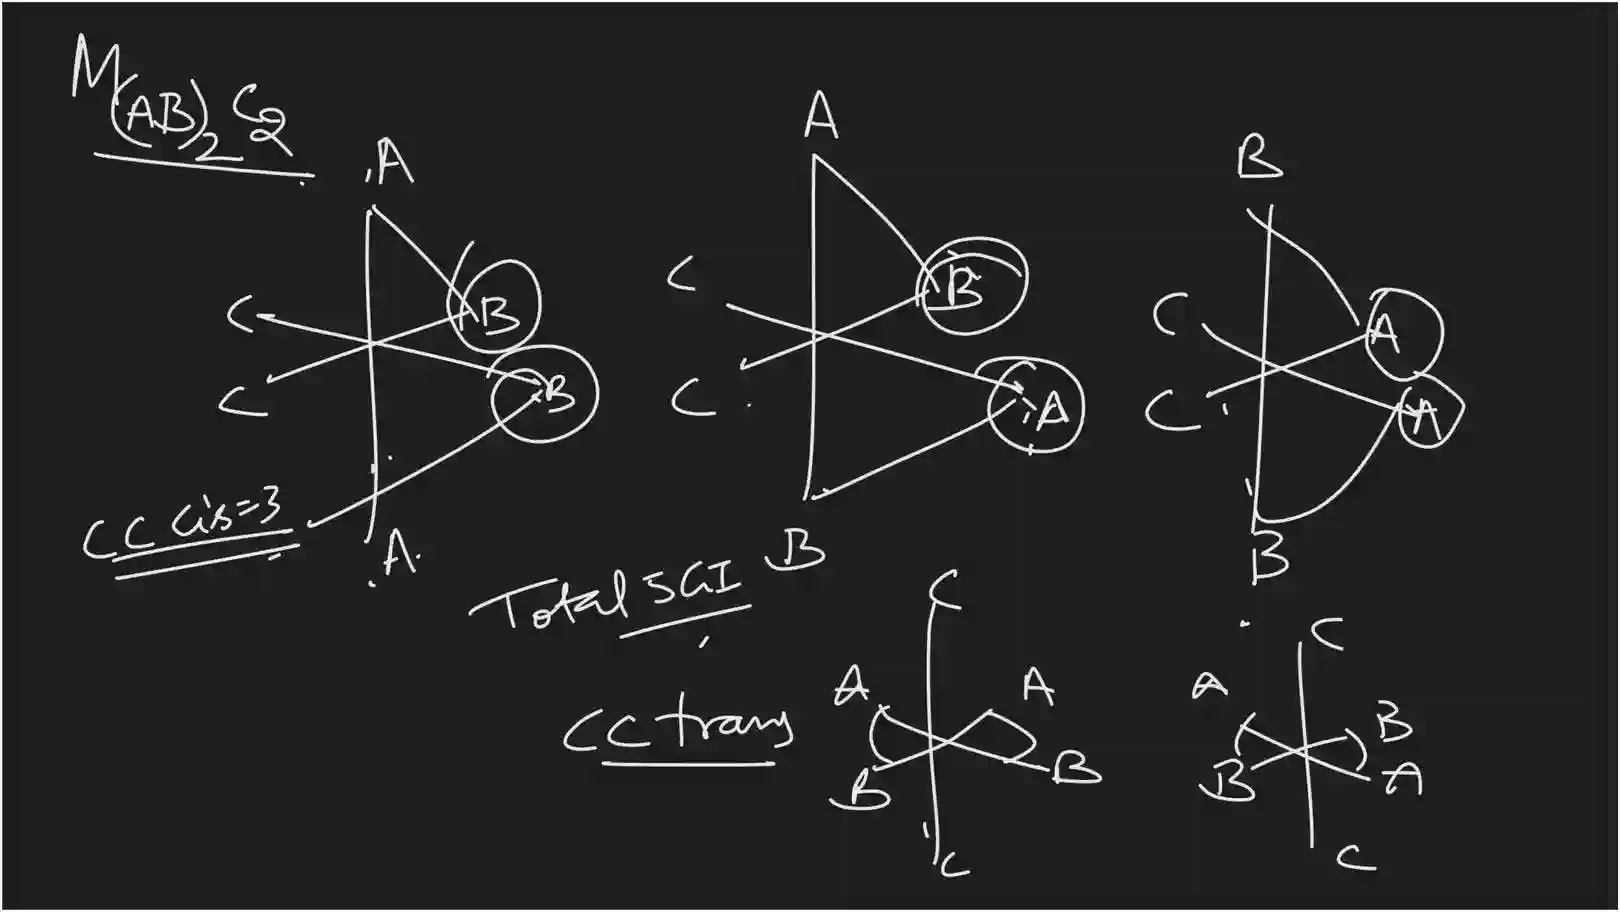 M(AB)2 C2
A
B
B
C
C
A
A
B
A
C
C
B
B
A
A
C
C
B
CC Cis=3
Total 5GI
CC trans
C
A
A
B
B
C
C
A
B
B
A
C